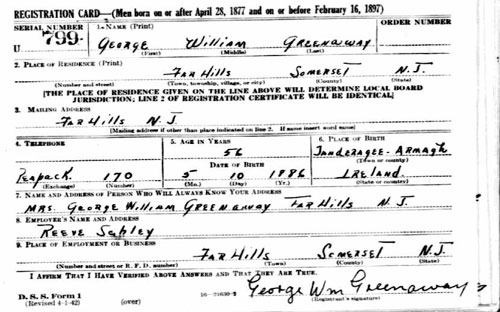 REGISTRATION CARD—(Men born on or after April 28, 1877 and on or before February 16, 1897)
SERIAL NUMBER 1. NAME (Print) ORDER NUMBER
U 799 GEORGE William GREENAWAY
(First) (Middle) (Last)
2. PLACE OF RESIDENCE (Print)
FAR Hills SOMERSET N.J.
(Number and street) (Town, township, village, or city) (County) (State)
[THE PLACE OF RESIDENCE GIVEN ON THE LINE ABOVE WILL DETERMINE LOCAL BOARD
JURISDICTION; LINE 2 OF REGISTRATION CERTIFICATE WILL BE IDENTICAL]
3. MAILING ADDRESS
FAR Hills N.J.
[Mailing address if other than place indicated on line 2. If same insert word same]
4. TELEPHONE 5. AGE IN YEARS 6. PLACE OF BIRTH
56 TANDERAGEE-ARMAGH
DATE OF BIRTH (Town or county)
PEAPACK 170 5 10 1886 IRELAND
(Exchange) (Number) (Mo.) (Day) (Yr.) (State or country)
7. NAME AND ADDRESS OF PERSON WHO WILL ALWAYS KNOW YOUR ADDRESS
MRS. GEORGE William GREENAWAY FAR Hills N J
8. EMPLOYER'S NAME AND ADDRESS
REEVE
9. PLACE OF EMPLOYMENT OR BUSINESS
FAR Hills SOMERSET N.J.
(Number and street or R. F. D. number) (Town) (County) (State)
I AFFIRM THAT I HAVE VERIFIED ABOVE ANSWERS AND THAT THEY ARE TRUE.
D. S. S. Form 1
(Revised 4-1-42) (over) George Wm Greenaway
(Registrant's signature)